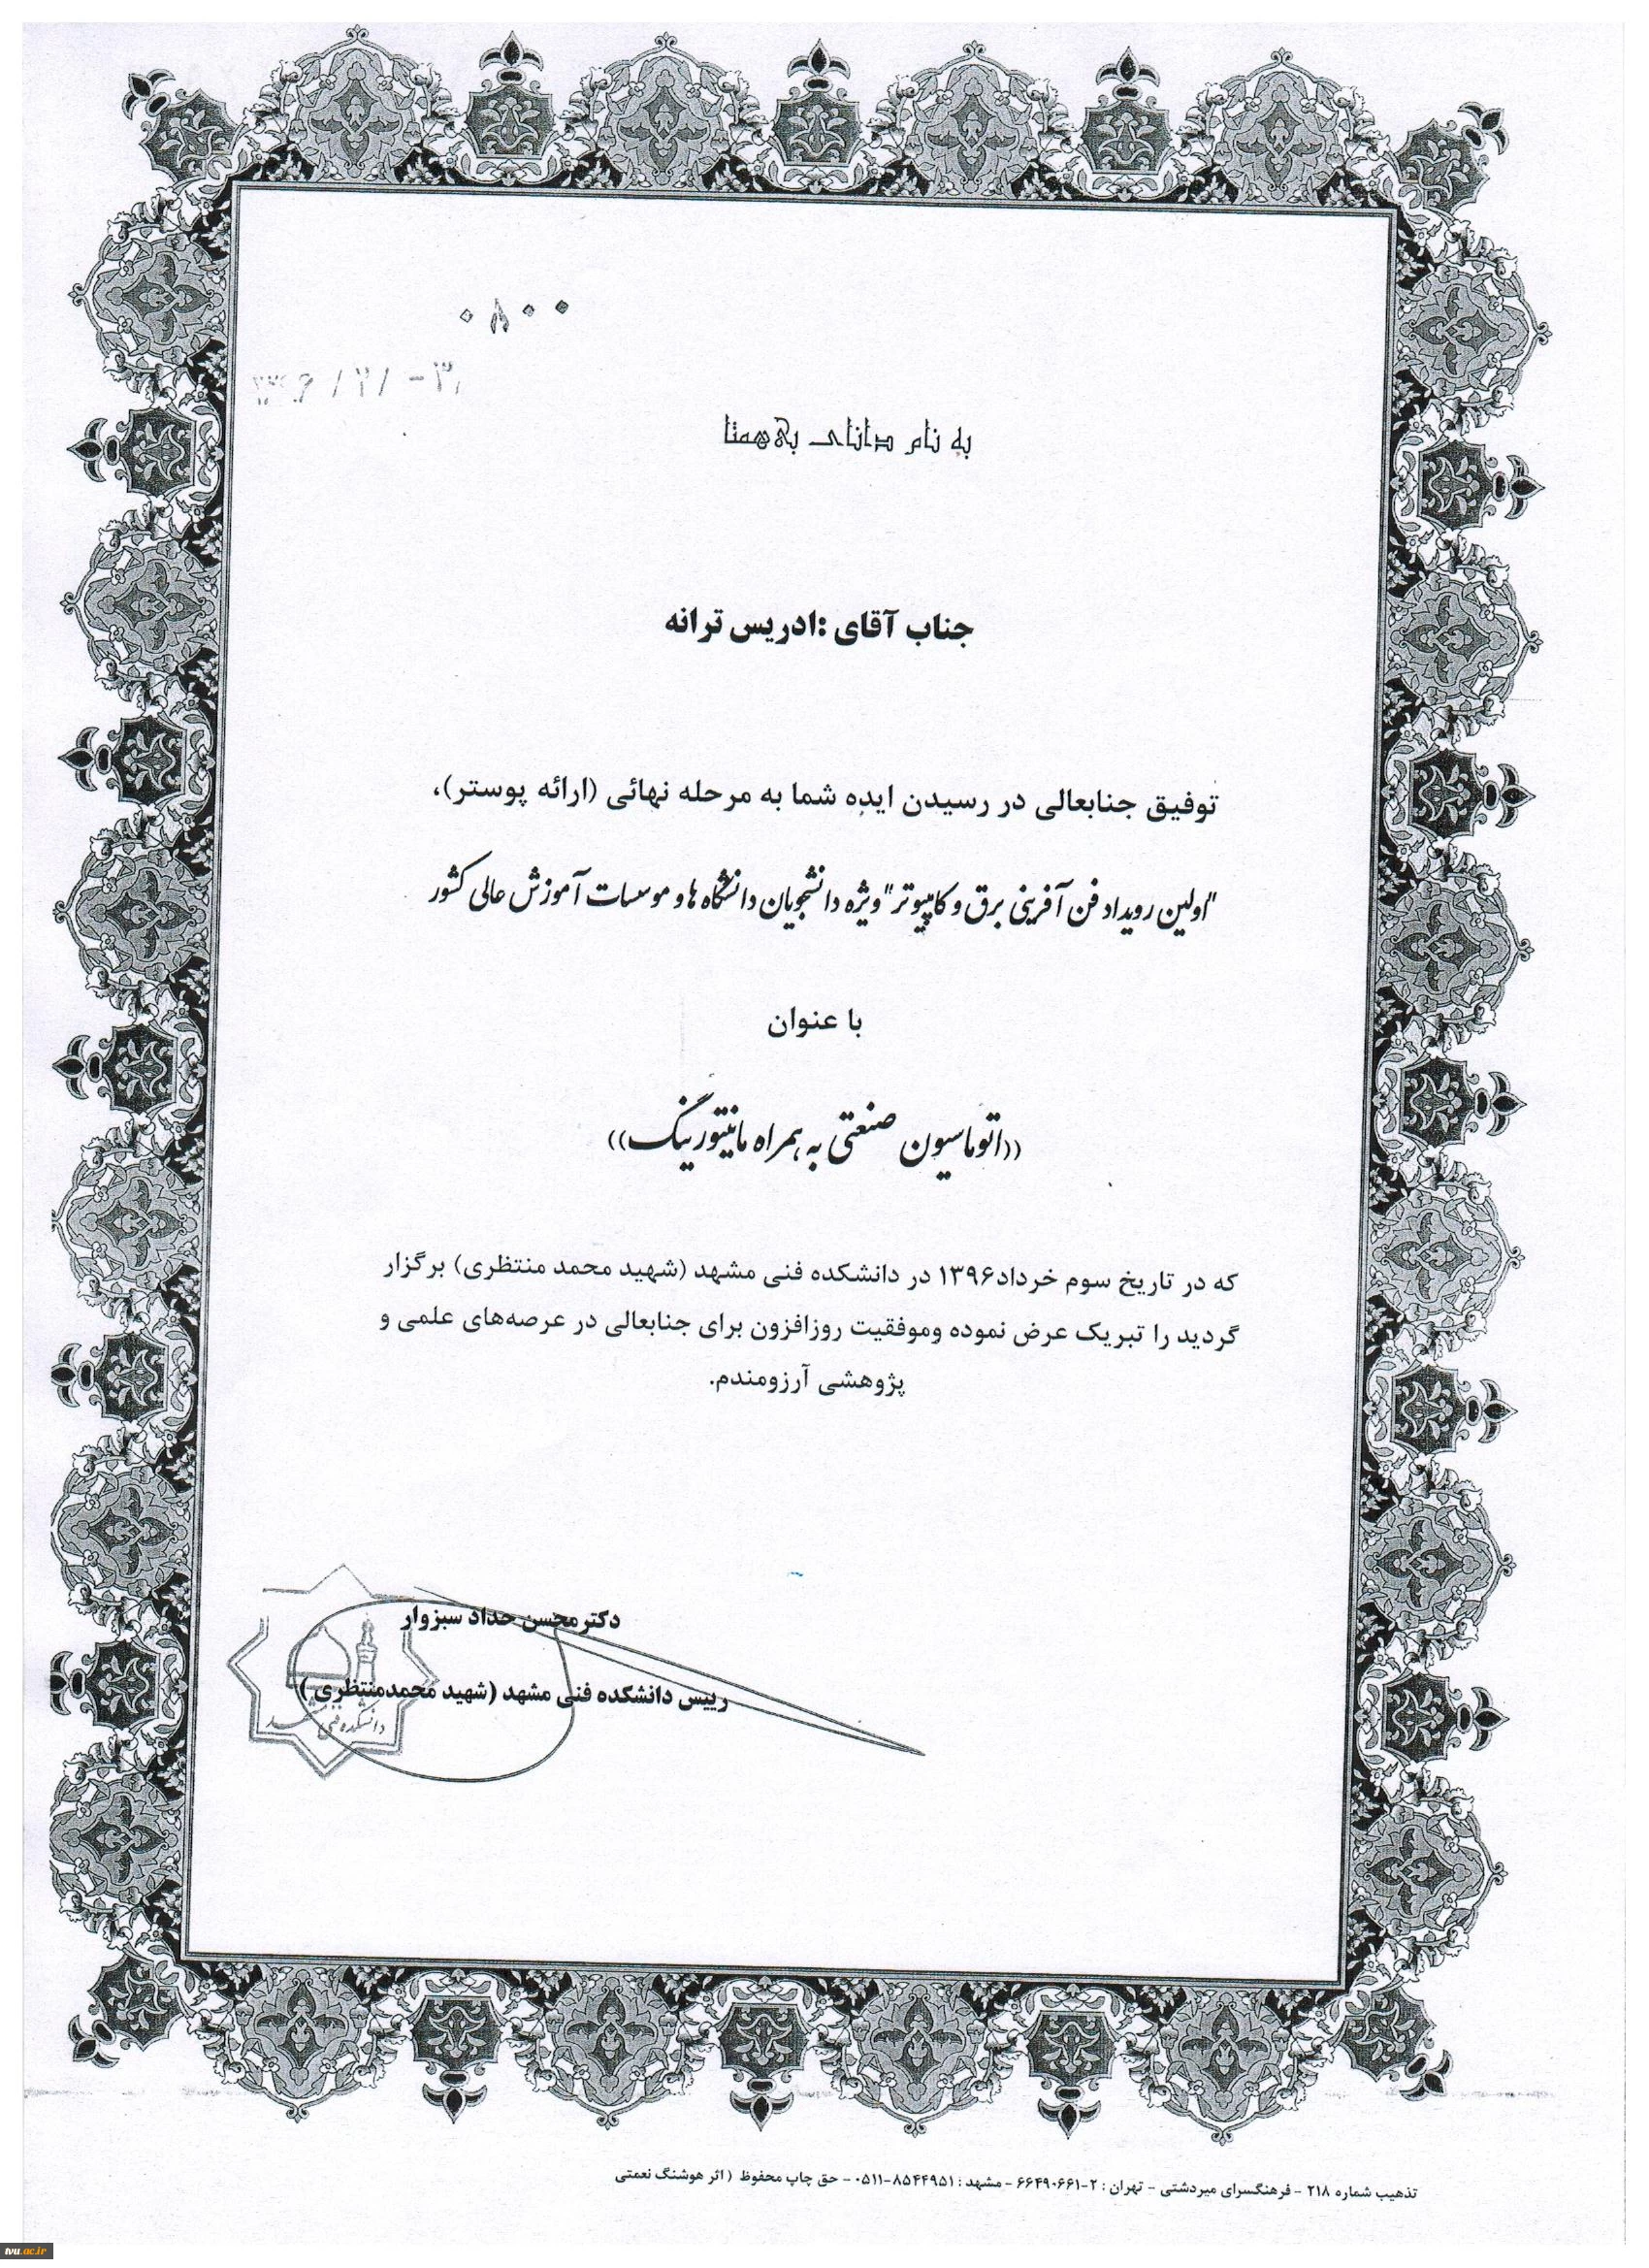 ۰۸۰۰
به نام دانای بی‌همتا
جناب آقای :ادریس ترانه
توفیق جنابعالی در رسیدن ایده شما به مرحله نهائی (ارائه پوستر)،
"اولین رویداد فن آفرینی برق و کامپیوتر" ویژه دانشجویان دانشگاه ها و موسسات آموزش عالی کشور
با عنوان
((اتوماسیون صنعتی به همراه مانیتورینگ))
که در تاریخ سوم خرداد۱۳۹۶ در دانشکده فنی مشهد (شهید محمد منتظری) برگزار
گردید را تبریک عرض نموده وموفقیت روزافزون برای جنابعالی در عرصه‌های علمی و
پژوهشی آرزومندم.
دکترمحسن حداد سبزوار
رییس دانشکده فنی مشهد (شهید محمدمنتظری )
دانشکده فنی مشهد
تذهیب شماره ۲۱۸ - فرهنگسرای میردشتی - تهران : ۲-۶۶۴۹۰۶۶۱ - مشهد : ۸۵۴۴۹۵۱-۰۵۱۱ - حق چاپ محفوظ ( اثر هوشنگ نعمتی
tvu.ac.ir